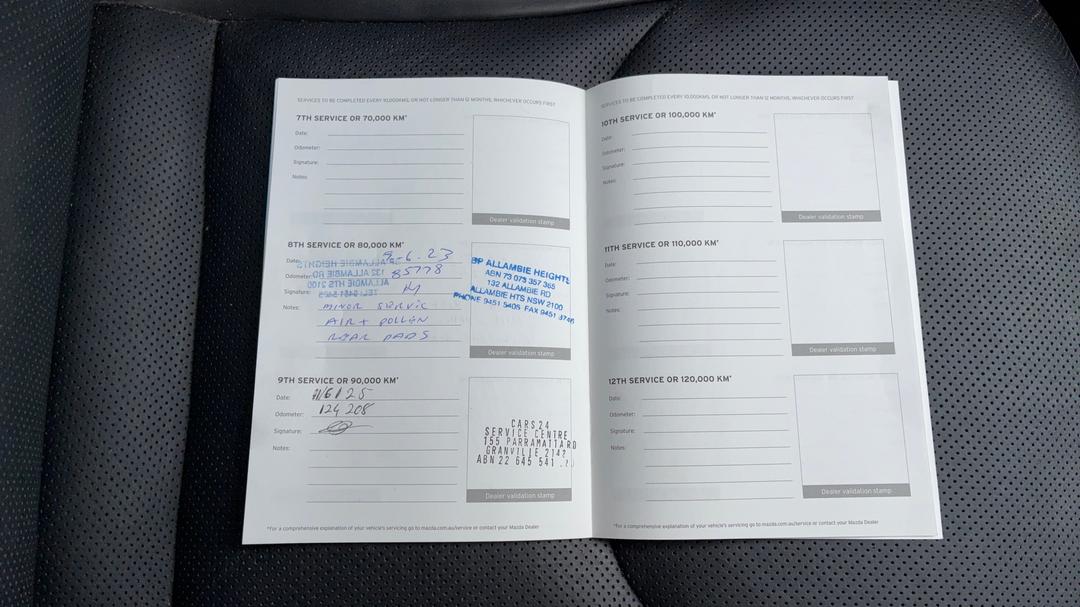 SERVICES TO BE COMPLETED EVERY 10,000KMS, OR NOT LONGER THAN 12 MONTHS, WHICHEVER OCCURS FIRST
7TH SERVICE OR 70,000 KM*
Date:
Odometer:
Signature:
Notes:
Dealer validation stamp
8TH SERVICE OR 80,000 KM*
Date: 9-6.23
Odometer: 85778
Signature:
Notes: MINOR SERVIC
AIR + POLLEN
REAR PADS
BP ALLAMBIE HEIGHTS
132 ALLAMBIE RD
ALLAMBIE HTS NSW 2100
TEL: 9451 5405
BP ALLAMBIE HEIGHTS
ABN 73 073 357 365
132 ALLAMBIE RD
ALLAMBIE HTS NSW 2100
PHONE 9451 5405 FAX 9451
Dealer validation stamp
9TH SERVICE OR 90,000 KM*
Date: 6/25
Odometer: 124 208
Signature:
Notes:
CARS24
SERVICE CENTRE
155 PARRAMATTA RD
GRANVILLE 2142
ABN 22 645 541
Dealer validation stamp
*For a comprehensive explanation of your vehicle's servicing go to mazda.com.au/service or contact your Mazda Dealer
SERVICES TO BE COMPLETED EVERY 10,000KMS, OR NOT LONGER THAN 12 MONTHS, WHICHEVER OCCURS FIRST
10TH SERVICE OR 100,000 KM*
Date:
Odometer:
Signature:
Notes:
Dealer validation stamp
11TH SERVICE OR 110,000 KM*
Date:
Odometer:
Signature:
Notes:
Dealer validation stamp
12TH SERVICE OR 120,000 KM*
Date:
Odometer:
Signature:
Notes:
Dealer validation stamp
*For a comprehensive explanation of your vehicle's servicing go to mazda.com.au/service or contact your Mazda Dealer